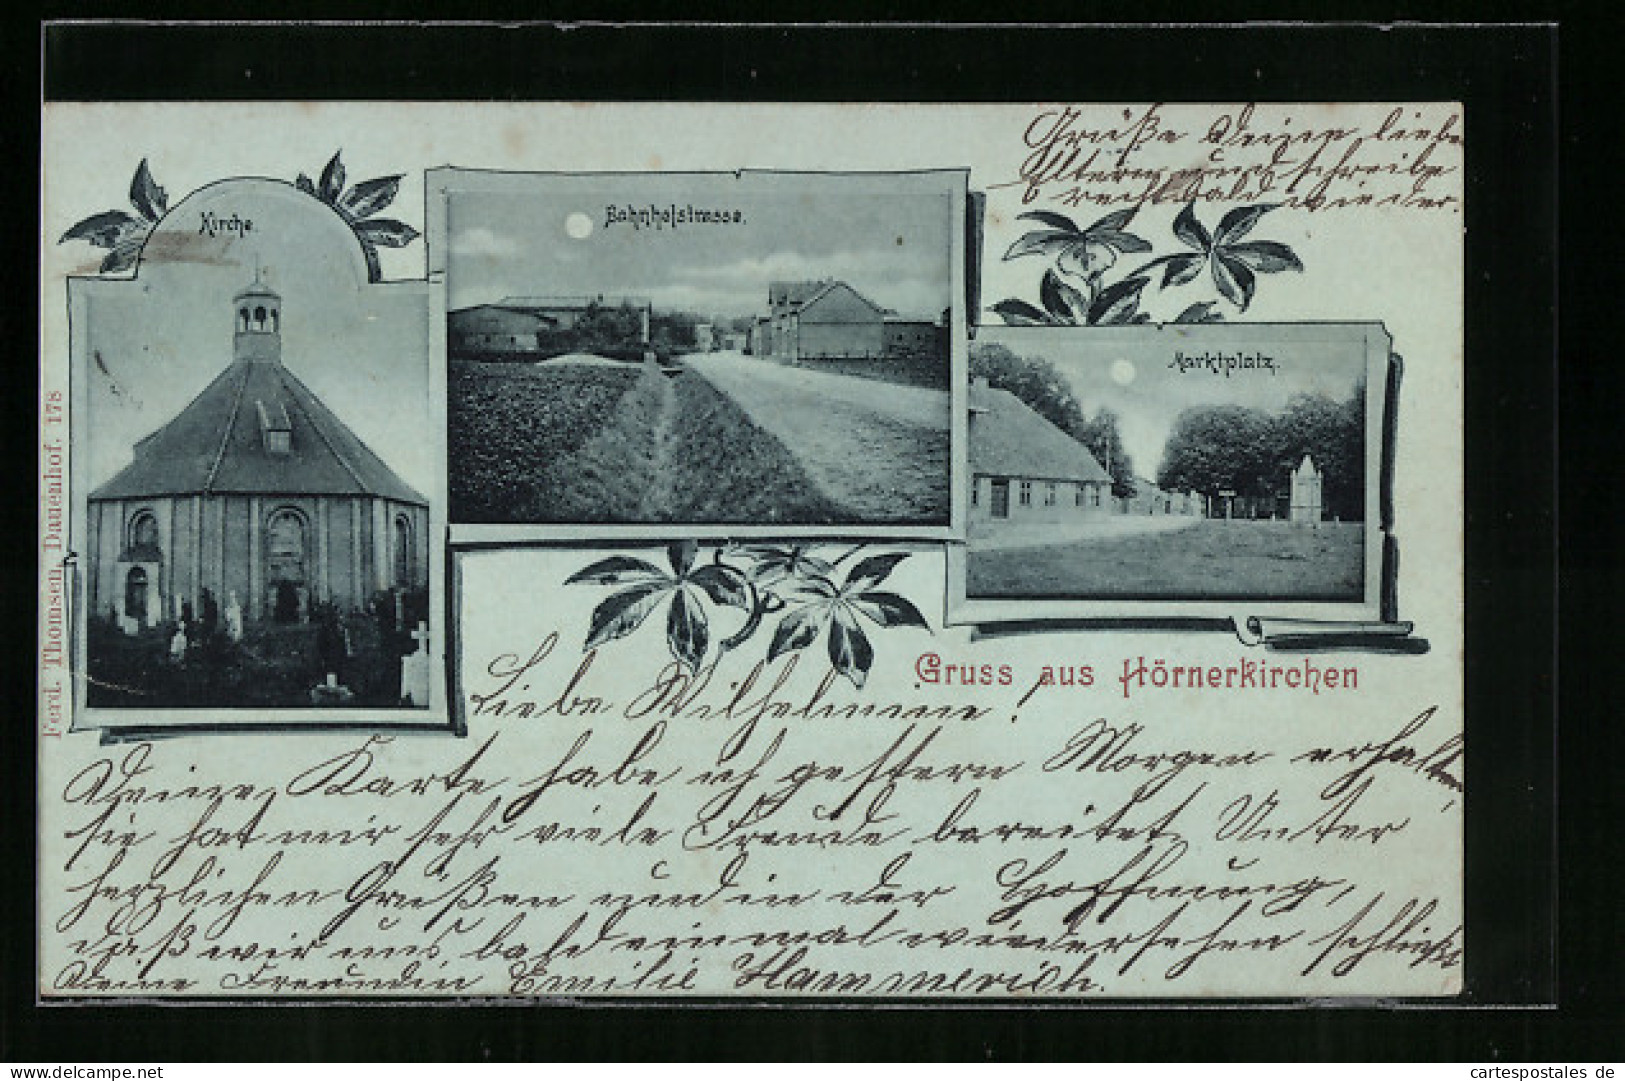 Grüße Deine liebe
Eltern und schreibe
recht bald wieder.
Kirche.
Bahnhofstrasse.
Marktplatz.
Ferd. Thomsen, Dauenhof. 178
Gruss aus Hörnerkirchen
Liebe Wilhelmine!
Deine Karte habe ich gestern Morgen erhalten,
sie hat mir sehr viele Freude bereitet. Unter
herzlichen Grüßen und in der Hoffnung,
daß wir uns bald einmal wiedersehen schließt
Deine Freundin Emilie Hammerich.
www.delcampe.net
cartespostales_de